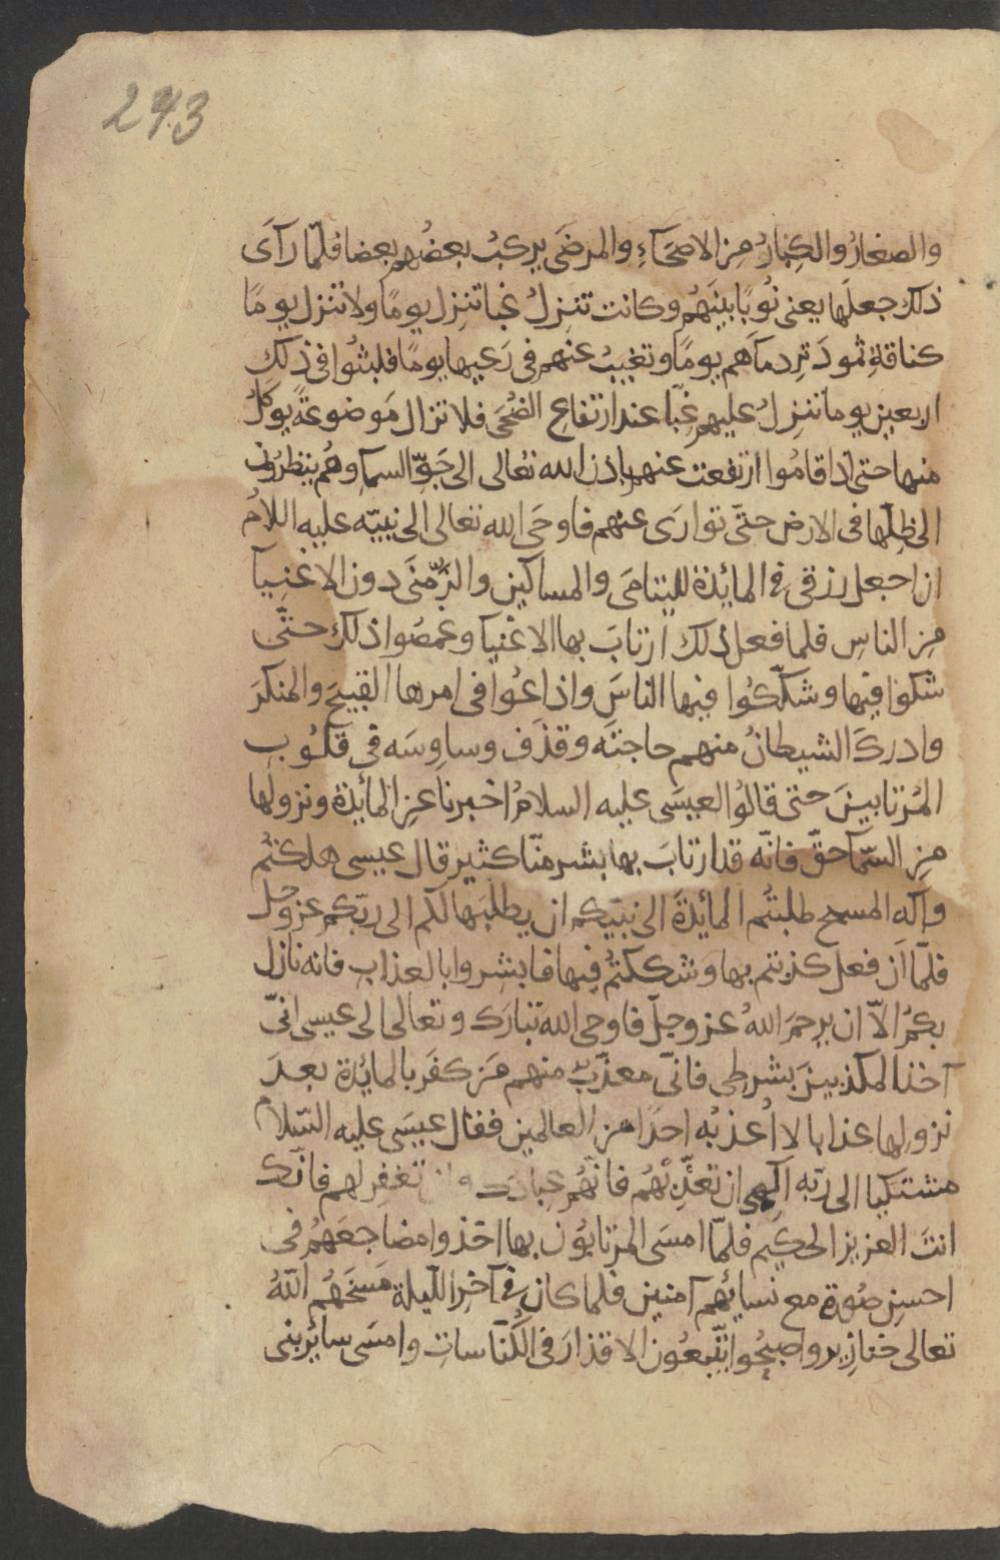 243
والصغارُ والكِبارُ مِن الاصحّآءِ والمرضَى يركبُ بعضُهم بعضا فلمّا رآى
ذلك جعلَها يعنى نُوبًا بينَهُم وكانت تنزِلُ غبا تنزل يومًا ولا تنزل يومًا
كناقةِ ثمودَ تِرِد ماَهم يومًا وتغيبُ عنهم فى رَعيها يومًا فلبثُوا فى ذلك
اربعين يوما تنزلُ عليهم غبّا عند ارتفاع الضُحَى فلا تزال مَوضوعةً يوكلُ
منها حتى اذا قامُوا ارتفعت عنهم باذن الله تعالى الى جَوّ السمآ وهُم ينظرُون
الى ظلّها فى الارض حتّى توارَى عنهم فاوحَى الله تعالى الى نبيّه عليه اللامُ
ان اجعل رزقى فى المائدة لليتامَى والمساكين والزّمنَى دون الاغنيآ
مِن الناسِ فلما فعل ذلك ارتابَ بها الاغنيا وغمصُوا ذلك حتَّى
شكوا فيها وشكّكُوا فيها الناسَ واذاعُوا فى امرها القبيحَ والمنكرَ
وادركَ الشيطانُ منهم حاجتَه وقذَف وساوِسَه فى قلُوب
المُرتابينَ حتى قالُوا لعيسَى عليه السلامُ اخبرنا عن المائدة ونزولها
مِن السّمآ حقّ فانّه قد ارتابَ بها بشر منّا كثير قال عيسى هلكتُم
وآله المسيح طلبتُم المائدةَ الى نبيّكم ان يطلبَها لكم الى ربّكم عزوجل
فلمّا اَن فعل كذبتم بها وشككتُم فِيها فابشِروا بالعذاب فانه نازل
بكمُ الّا ان يرحمَ اللهُ عزوجلّ فاوحى الله تبارَك وتعالى الى عيسى انّى
آخذ المكذبينَ بشرطِى فانّى معذّبٌ منهم مَن كفَر بالمائدة بعدَ
نزولها عذابا لا اُعذبُه احدًا من العالمين فقال عيسَى عليه السّلامُ
مشتكيا الى ربّه الٓهى ان تعذّبْهُم فانّهُم عبادك وان تغفِر لهم فانّك
انتَ العزيز الحكِيم فلمّا امسَى المرتابُون بها اخذوا مضاجعَهُم فى
احسنِ صُورة مع نسائهم آمنين فلما كان فى آخر اللّيلة مَسخَهُم اللهُ
تعالى خنازِير واصبحُوا يتّبعُون الاقذارَ فى الكُنّاساتِ وامسَى سائر بنى